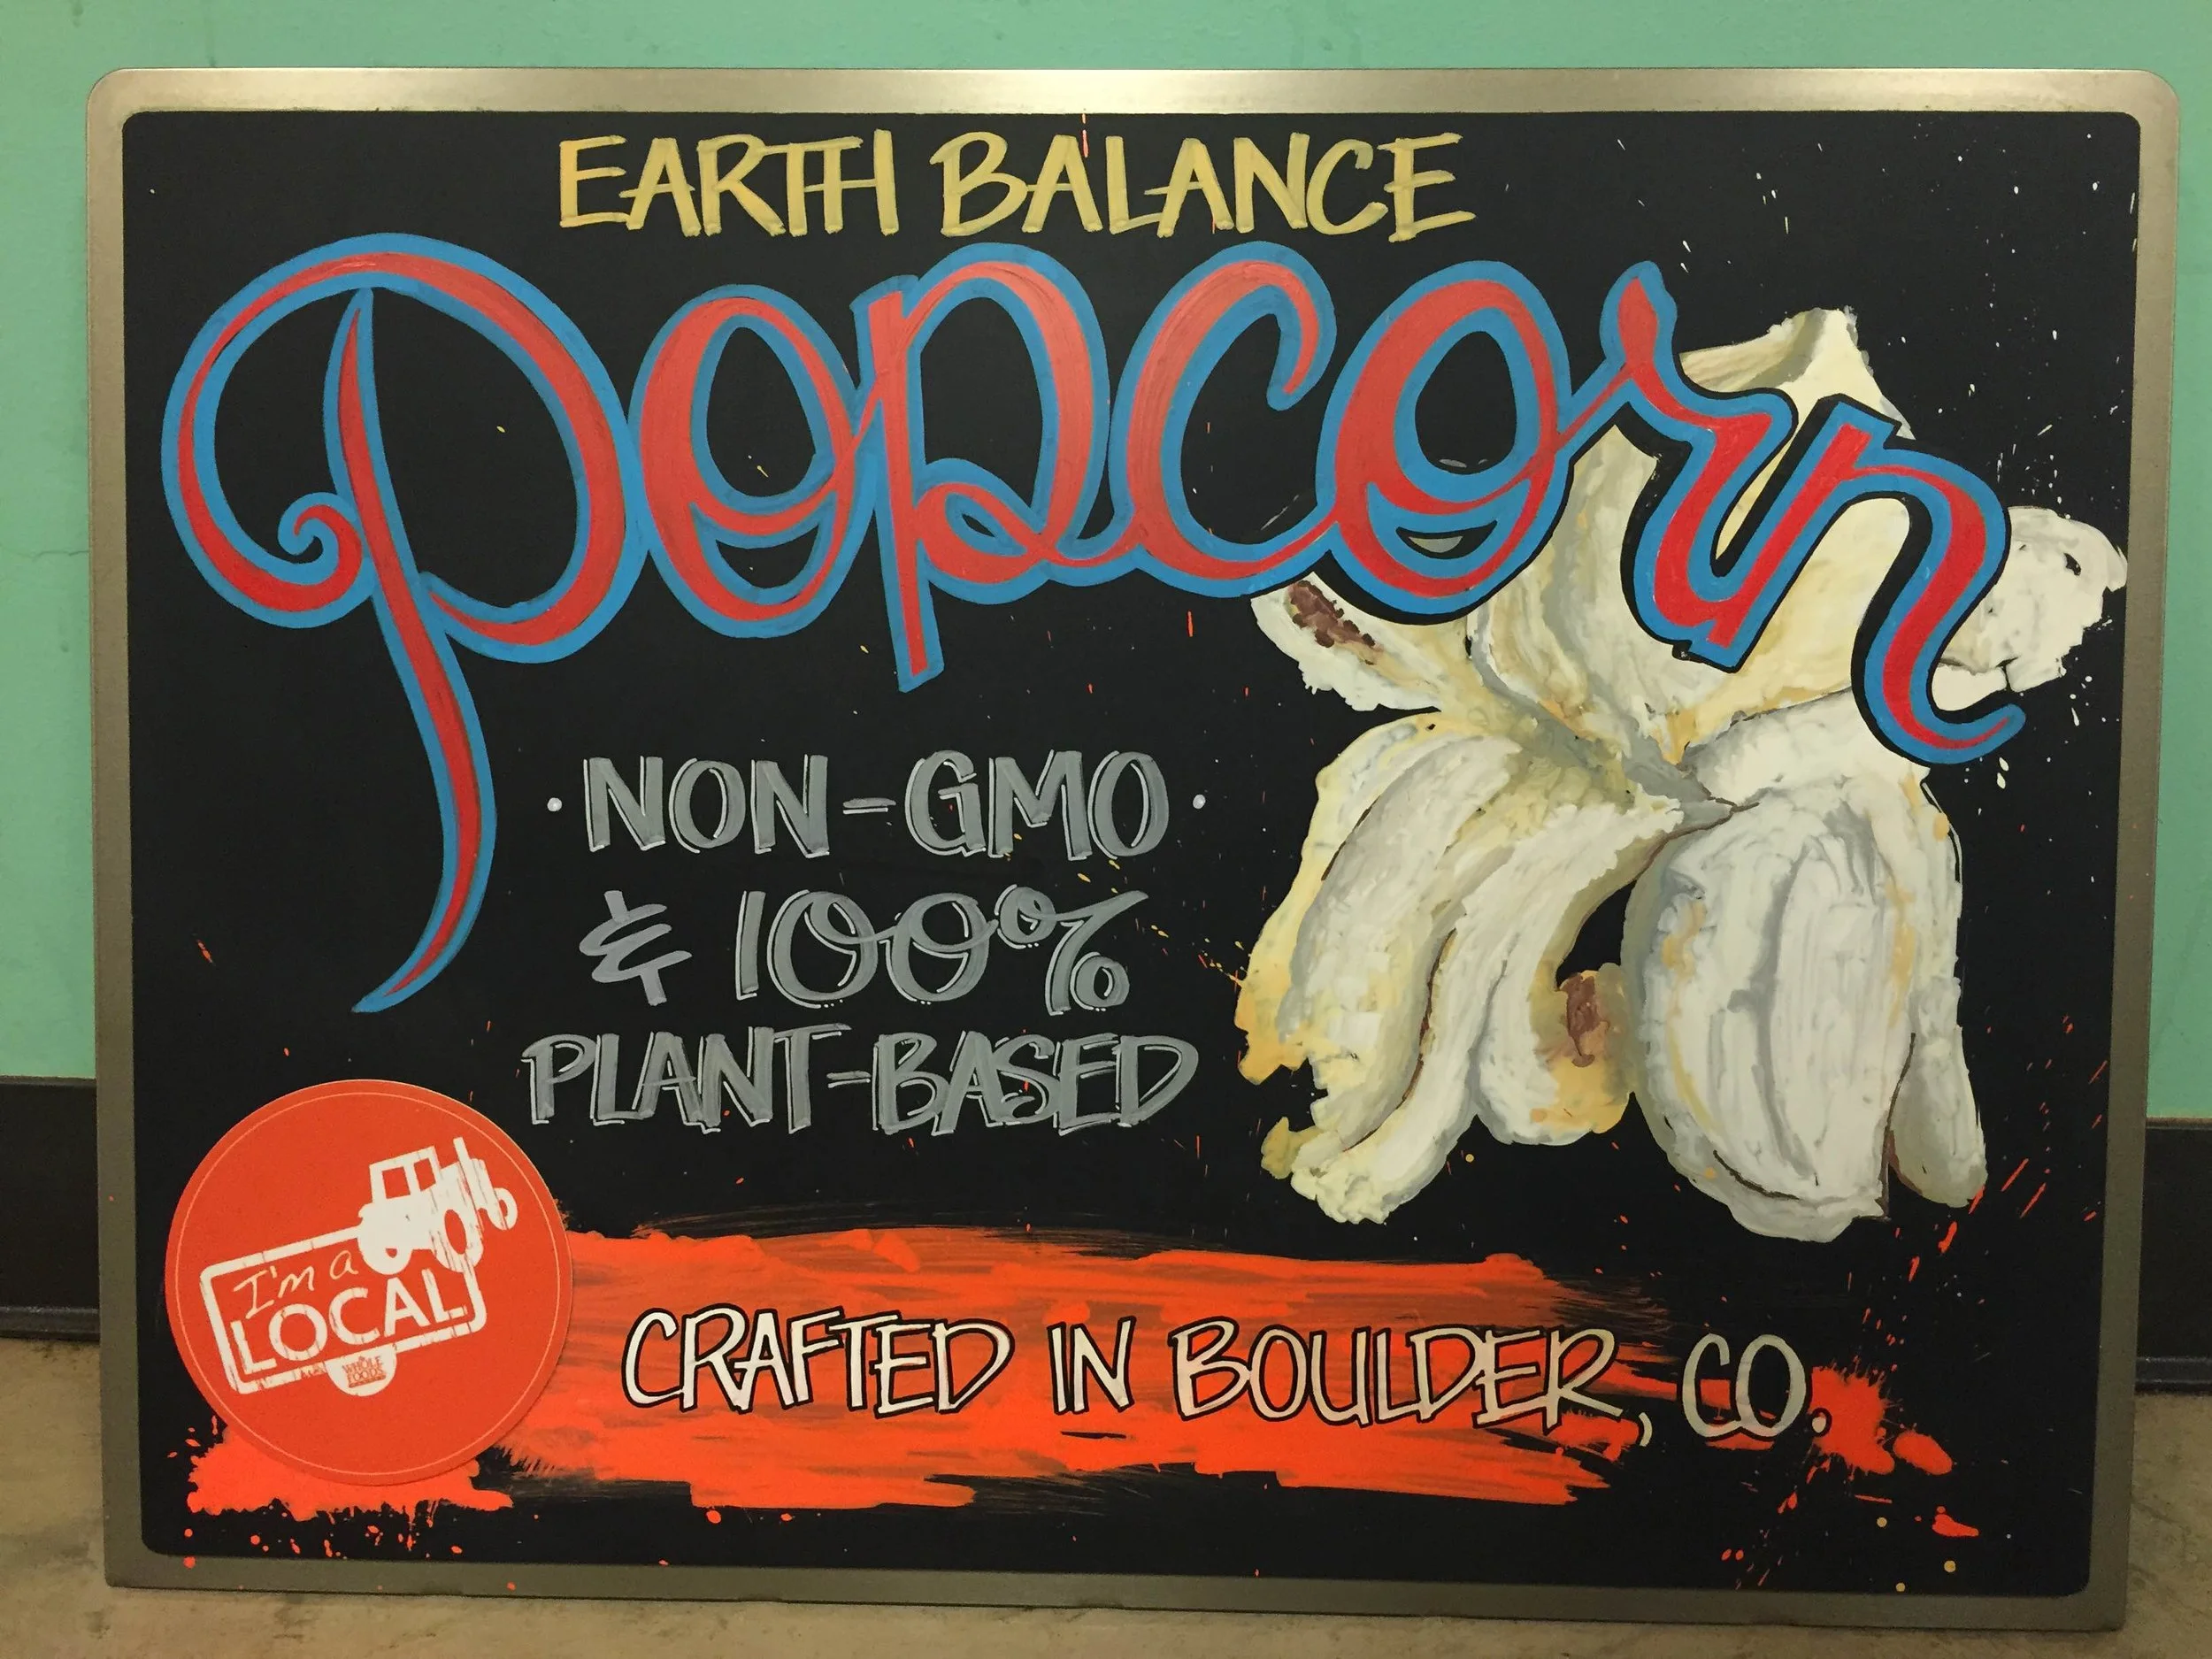 EARTH BALANCE
Popcorn
·NON-GMO·
& 100%
PLANT-BASED
I'm a
LOCAL
WHOLE
FOODS
CRAFTED IN BOULDER, CO.